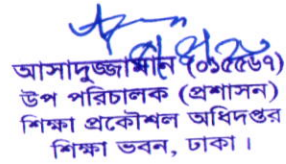 আসাদুজ্জামান (০১৫৫৬৭)
উপ পরিচালক (প্রশাসন)
শিক্ষা প্রকৌশল অধিদপ্তর
শিক্ষা ভবন, ঢাকা।